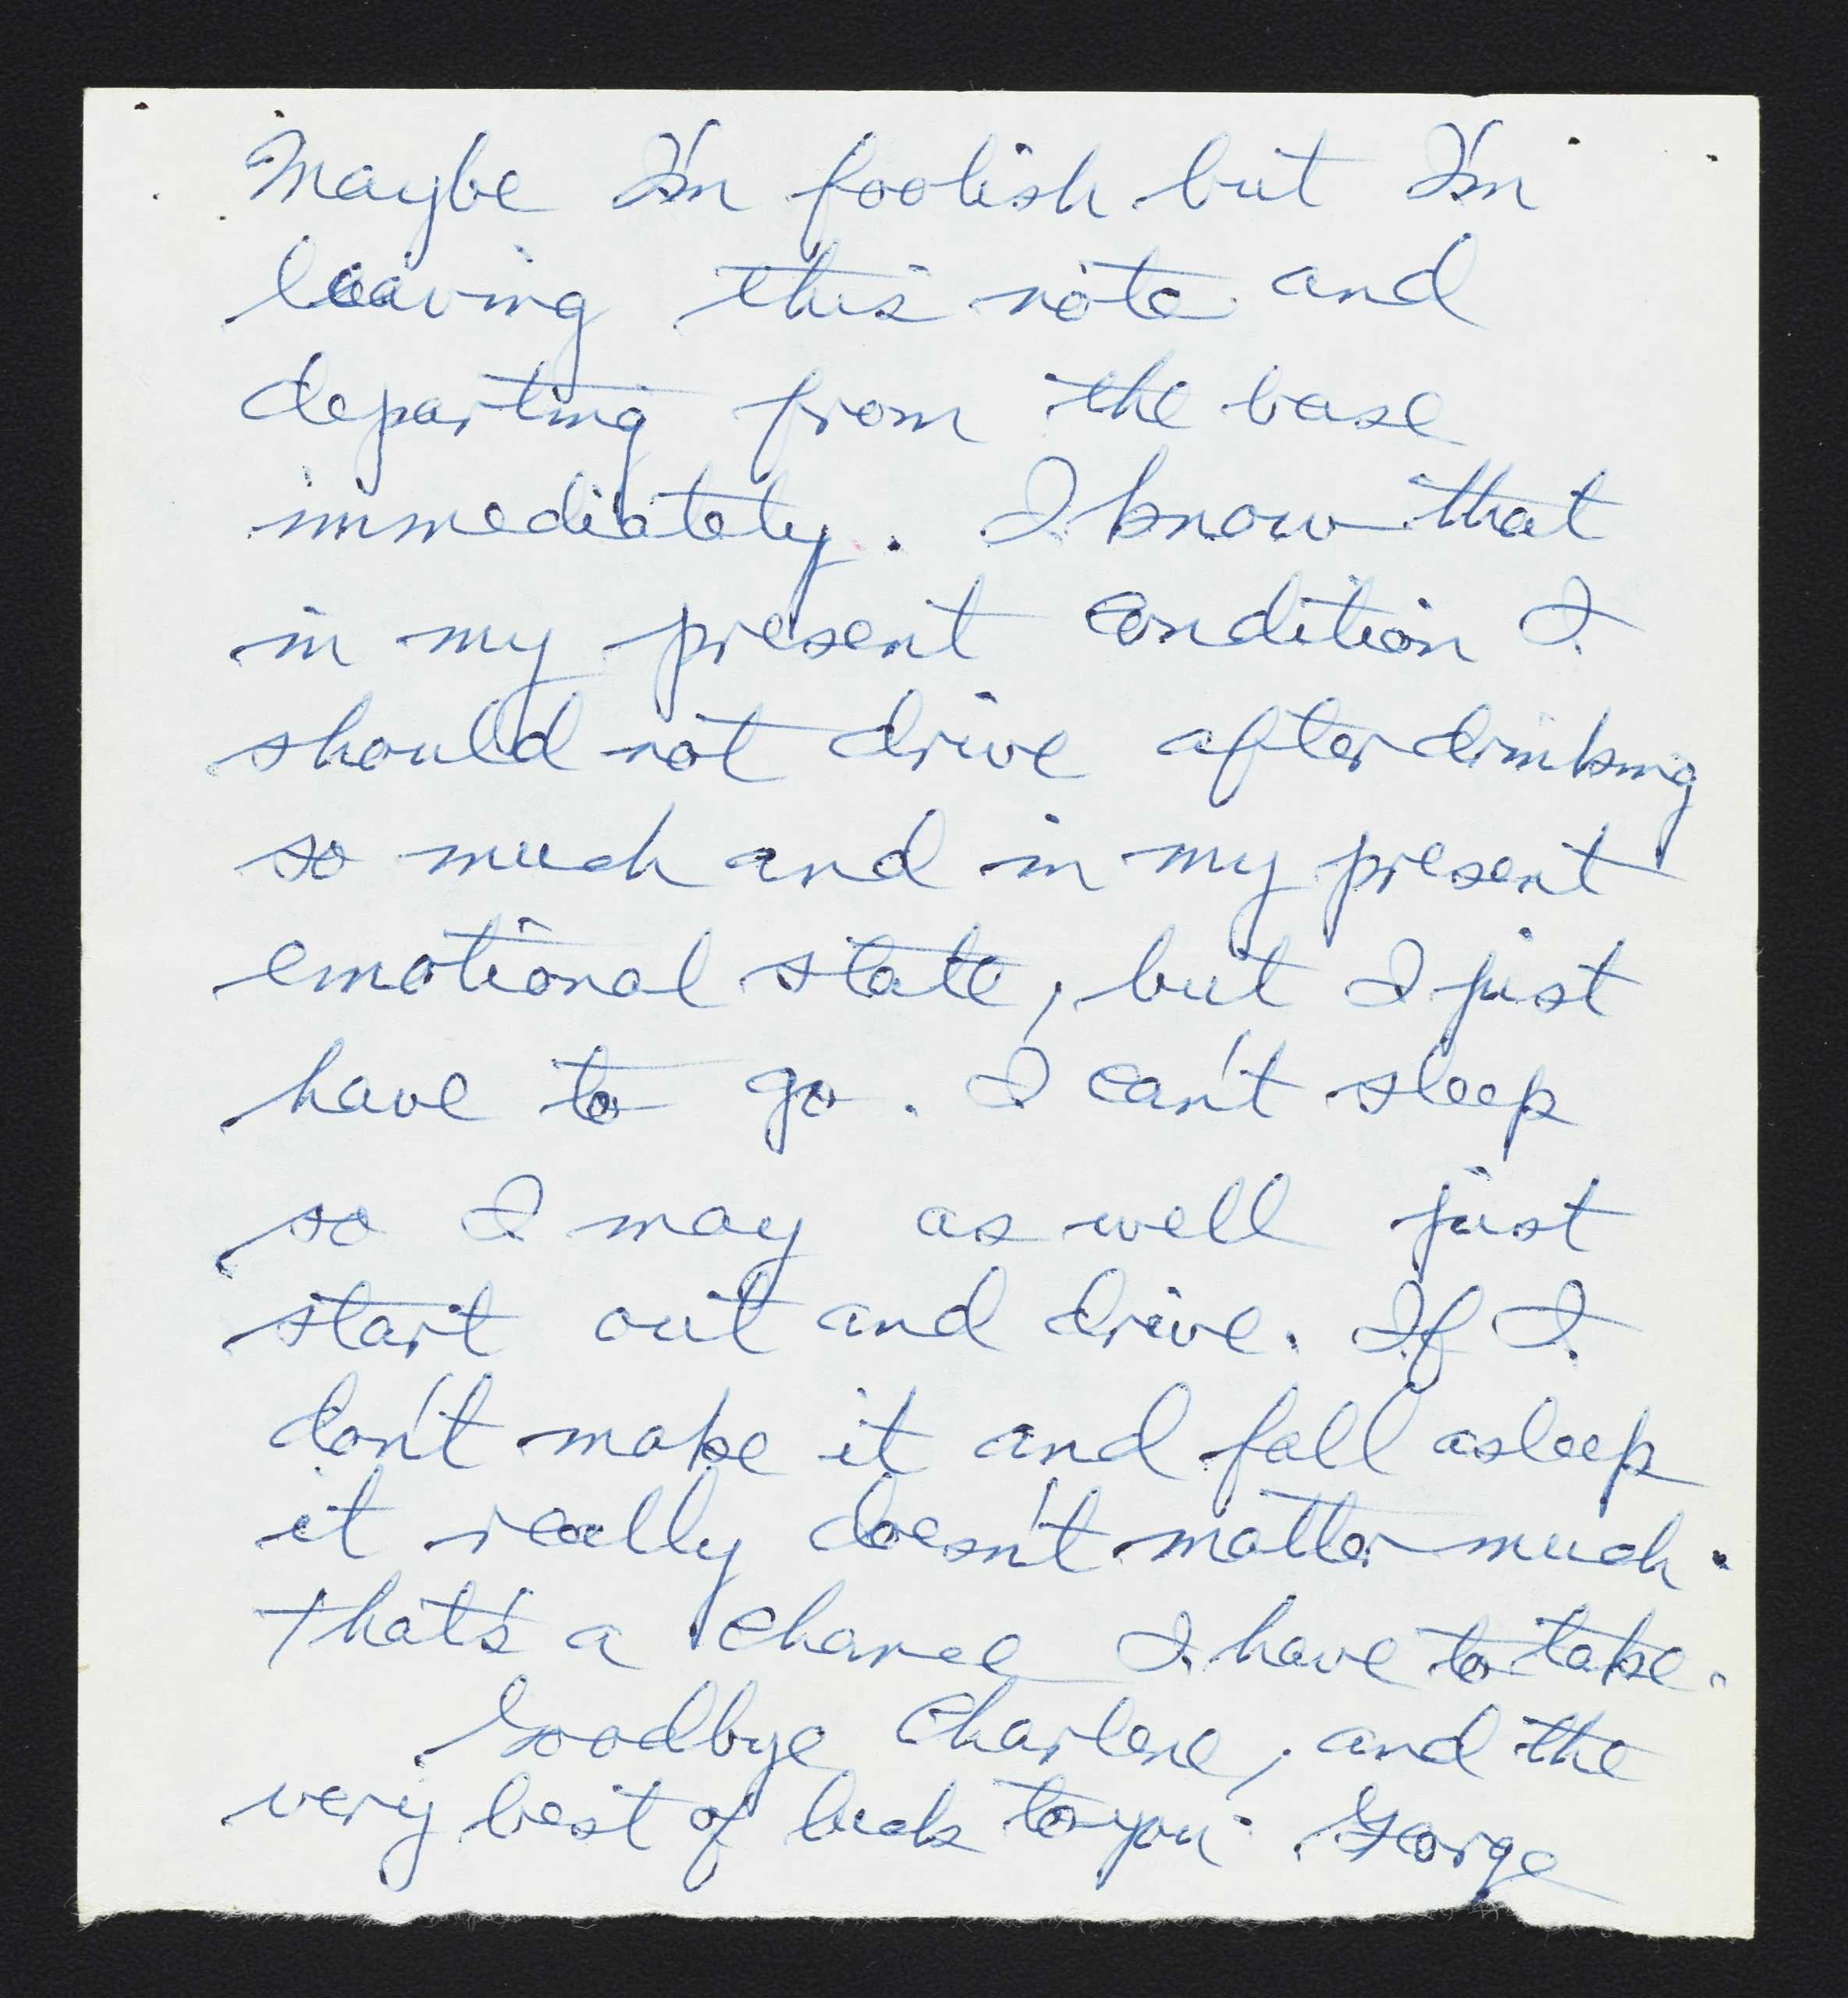 Maybe I'm foolish but I'm
leaving this note and
departing from the base
immediately. I know that
in my present condition I
should not drive after drinking
so much and in my present
emotional state, but I just
have to go. I can't sleep
so I may as well just
start out and drive. If I
don't make it and fall asleep
it really doesn't matter much.
That's a chance I have to take.
Goodbye Charlene, and the
very best of luck to you. George